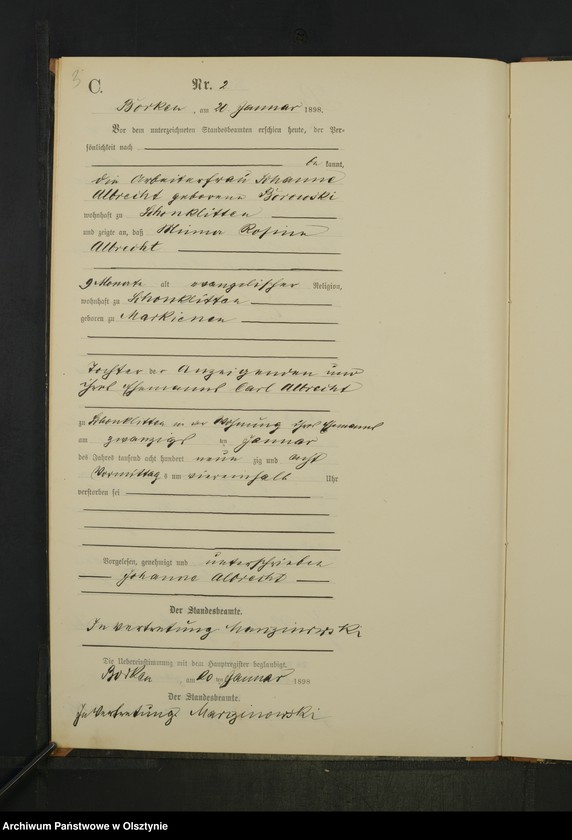 C.
Nr. 2
Borken, am 20 Januar 1898.
Vor dem unterzeichneten Standesbeamten erschien heute, der Per-
sönlichkeit nach
be kannt,
die Arbeiterfrau Johanne
Albrecht geborene Borowski
wohnhaft zu Schönklitten
und zeigte an, daß Minna Rosine
Albrecht
9 Monate alt evangelischer Religion,
wohnhaft zu Schönklitten
geboren zu Markienen
Tochter der Anzeigenden und
ihres Ehemannes Carl Albrecht
zu Schönklitten in der Wohnung ihres Ehemannes
am zwanzigs ten Januar
des Jahres tausend acht hundert neun zig und acht
Vormittags um viereinhalb Uhr
verstorben sei
Vorgelesen, genehmigt und unterschrieben
Johanne Albrecht
Der Standesbeamte.
In Vertretung Marzinowski
Die Uebereinstimmung mit dem Hauptregister beglaubigt.
Borken, am 20 ten Januar 1898
Der Standesbeamte.
In Vertretung Marzinowski
Archiwum Państwowe w Olsztynie